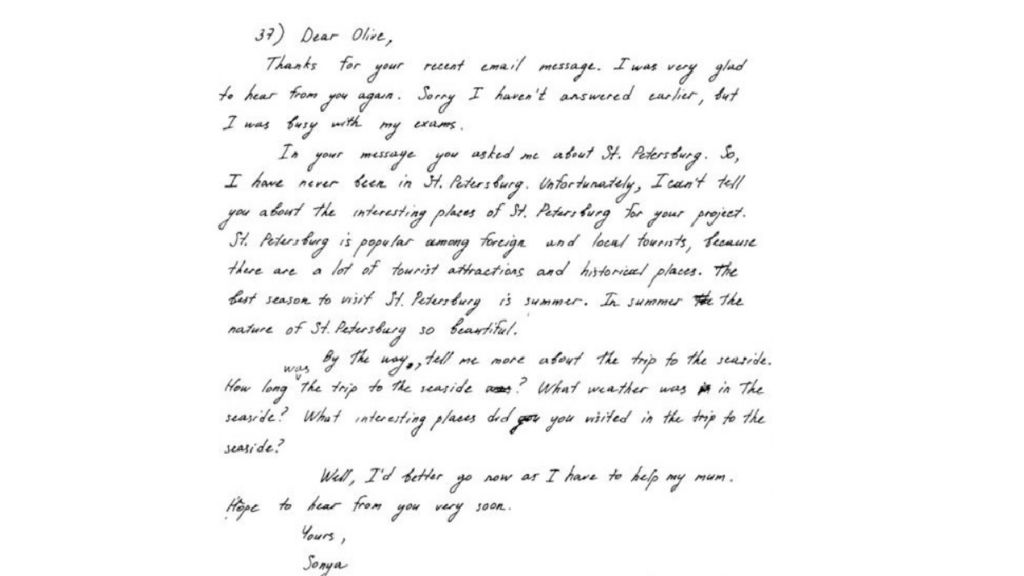 37) Dear Olive,
Thanks for your recent email message. I was very glad
to hear from you again. Sorry I haven't answered earlier, but
I was busy with my exams.
In your message you asked me about St. Petersburg. So,
I have never been in St. Petersburg. Unfortunately, I can't tell
you about the interesting places of St. Petersburg for your project.
St. Petersburg is popular among foreign and local tourists, because
there are a lot of tourist attractions and historical places. The
best season to visit St. Petersburg is summer. In summer the
nature of St. Petersburg so beautiful.
By the way, tell me more about the trip to the seaside.
How long was the trip to the seaside? What weather was in the
seaside? What interesting places did you visited in the trip to the
seaside?
Well, I'd better go now as I have to help my mum.
Hope to hear from you very soon.
Yours,
Sonya